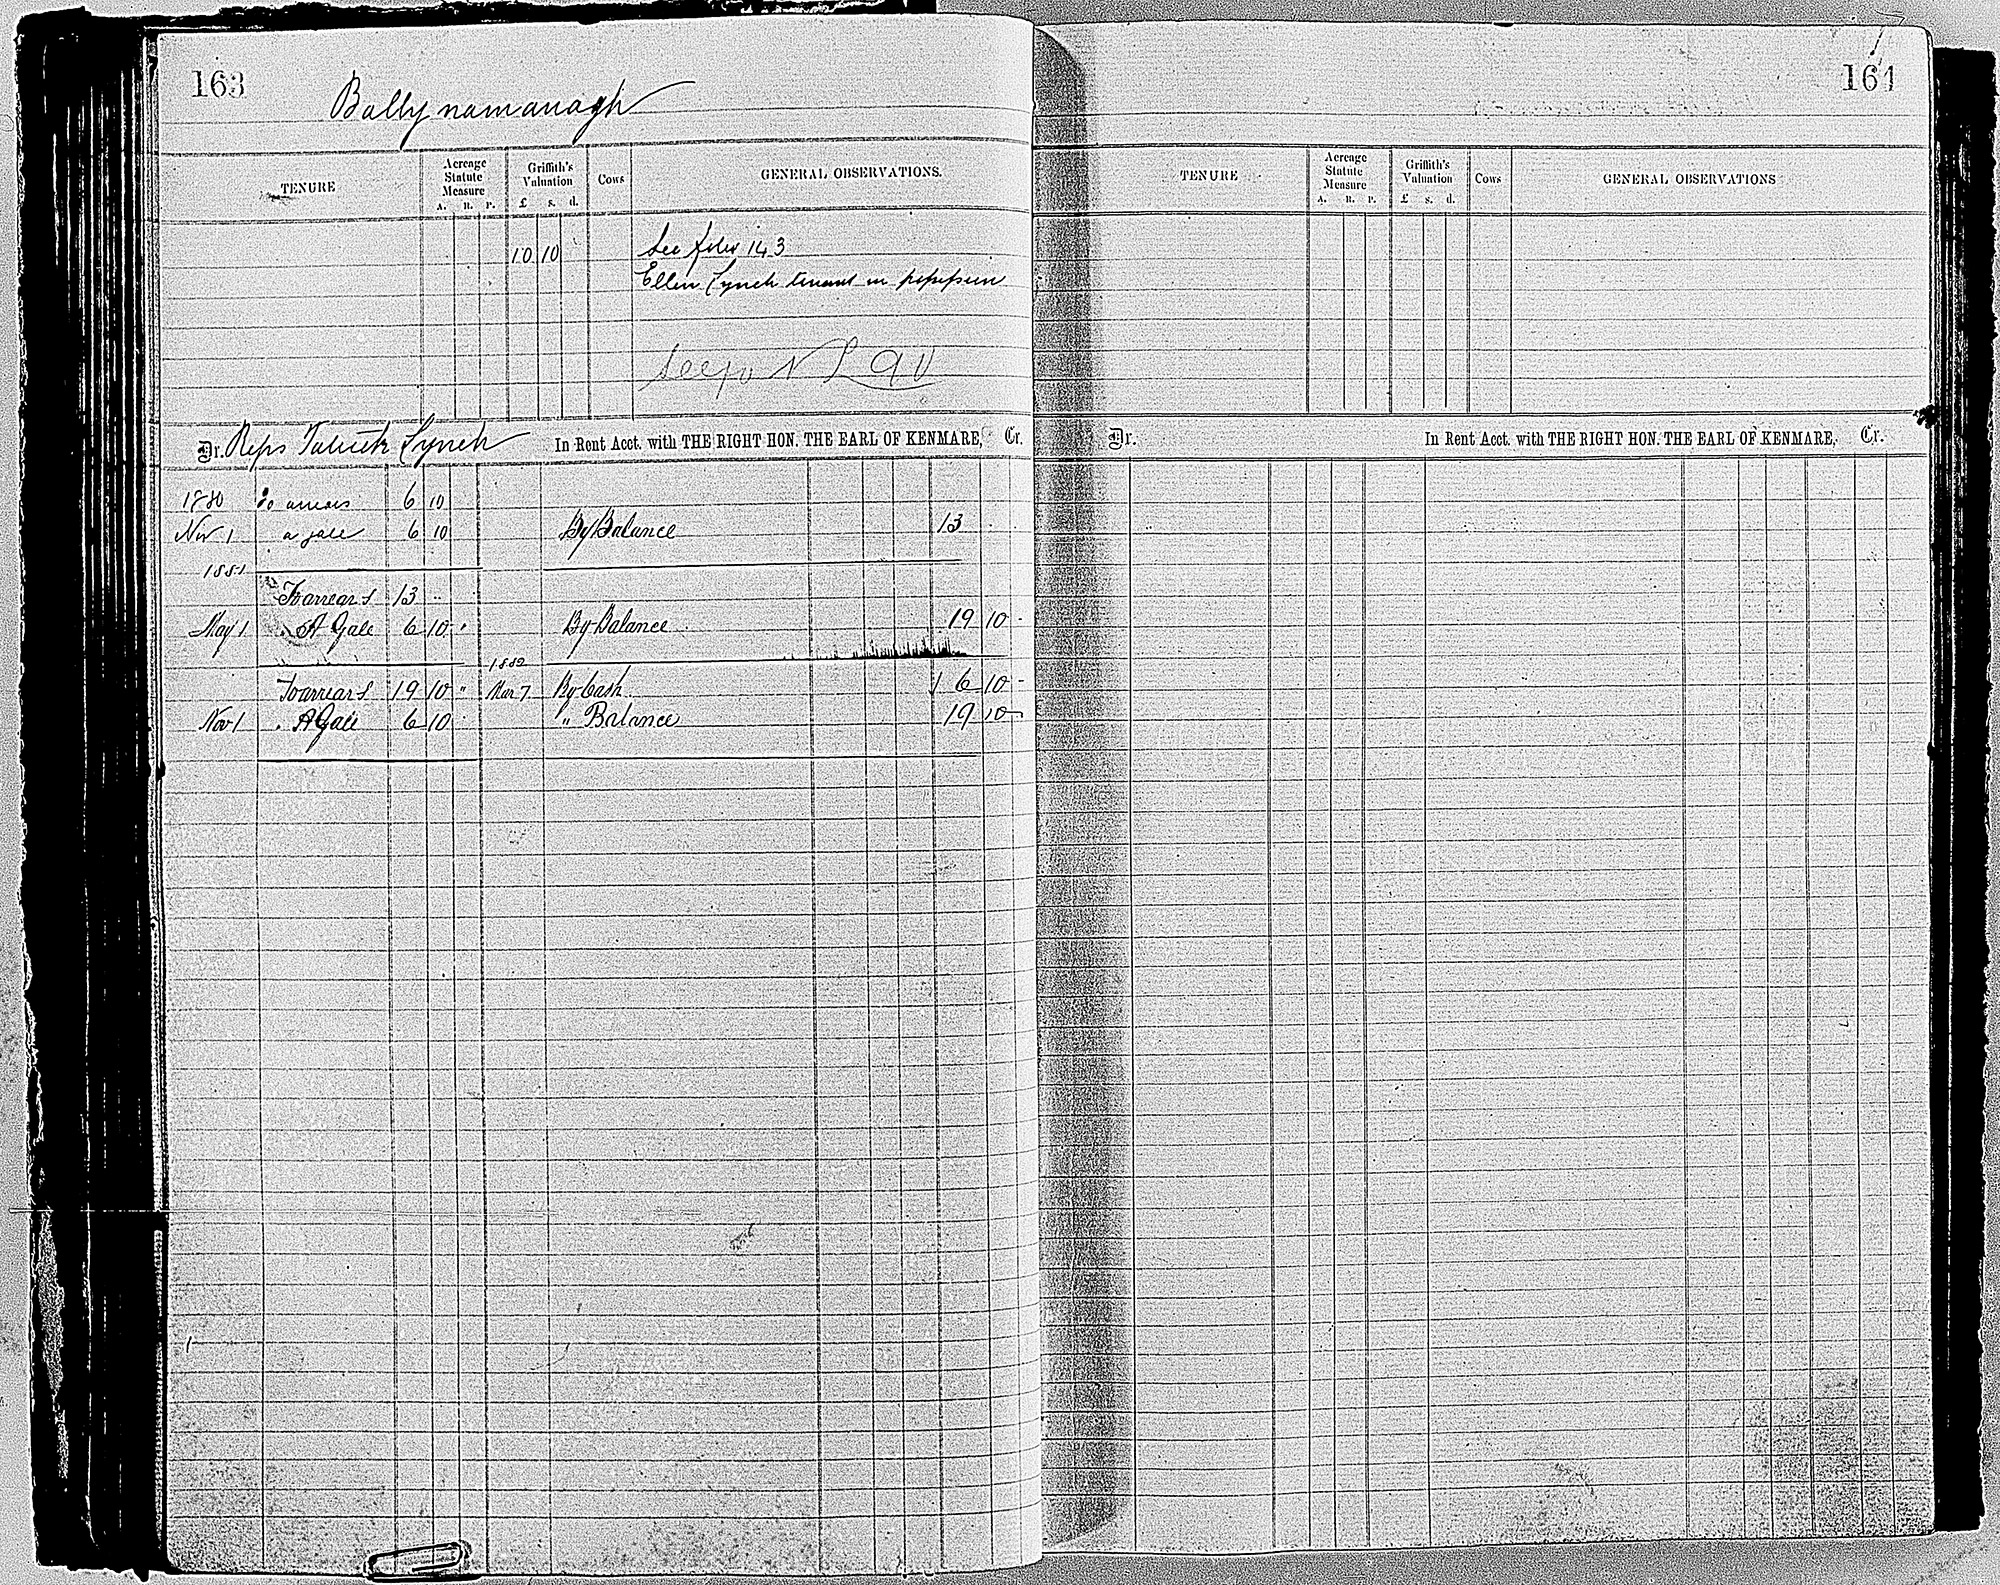 163
Ballynamanagh
TENURE
Acreage Statute Measure
A. R. P.
Griffith's Valuation
£ s. d.
Cows
GENERAL OBSERVATIONS.
10 10
See folio 143
Ellen Lynch tenant in possession
See
Dr. Reps Patrick Lynch In Rent Acct. with THE RIGHT HON. THE EARL OF KENMARE, Cr.
1880 To arrears 6 10
Nov 1 a gale 6 10 By Balance 13
1881
To arrears 13
May 1 " A Gale 6 10 " By Balance 19 10 -
1882
To arrears 19 10 " Mar 7 By Cash 6 10 -
Nov 1 " A Gale 6 10 " Balance 19 10 -
164
TENURE
Acreage Statute Measure
A. R. P.
Griffith's Valuation
£ s. d.
Cows
GENERAL OBSERVATIONS
Dr. In Rent Acct. with THE RIGHT HON. THE EARL OF KENMARE, Cr.